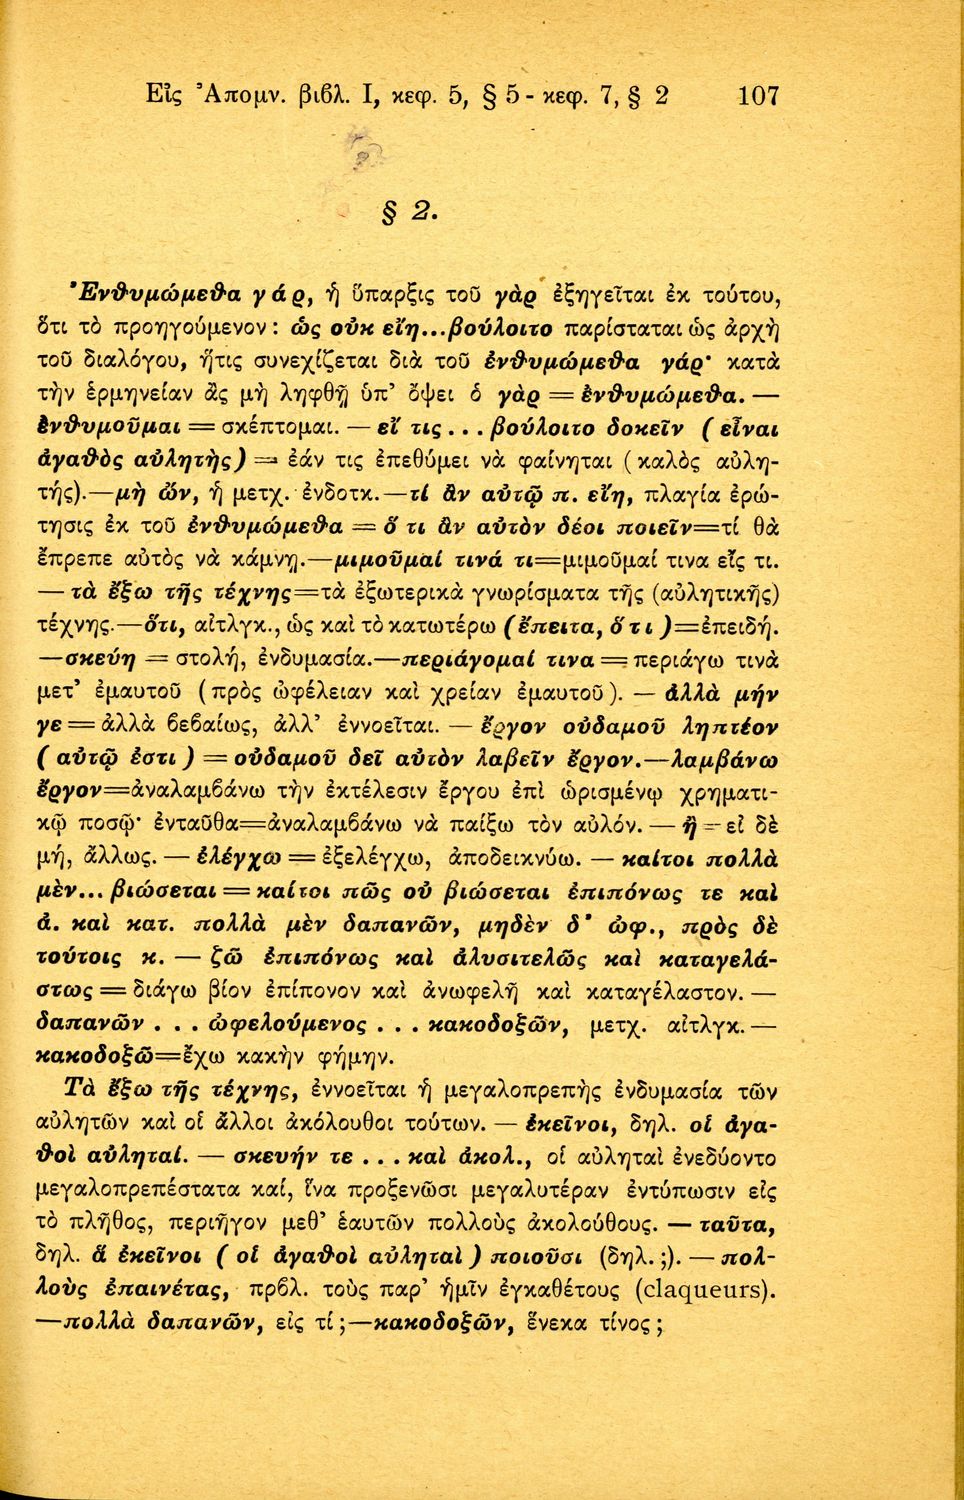 Εἰς Ἀπομν. βιβλ. Ι, κεφ. 5, § 5 - κεφ. 7, § 2 107
§ 2.
Ἐνθυμώμεθα γάρ, ἡ ὕπαρξις τοῦ γὰρ ἐξηγεῖται ἐκ τούτου,
ὅτι τὸ προηγούμενον : ὡς οὐκ εἴη...βούλοιτο παρίσταται ὡς ἀρχὴ
τοῦ διαλόγου, ἥτις συνεχίζεται διὰ τοῦ ἐνθυμώμεθα γάρ· κατὰ
τὴν ἑρμηνείαν ἂς μὴ ληφθῇ ὑπ’ ὄψει ὁ γὰρ = ἐνθυμώμεθα. —
ἐνθυμοῦμαι = σκέπτομαι. — εἴ τις . . . βούλοιτο δοκεῖν ( εἶναι
ἀγαθὸς αὐλητὴς) = ἐάν τις ἐπεθύμει νὰ φαίνηται ( καλὸς αὐλη-
τής).—μὴ ὤν, ἡ μετχ. ἐνδοτκ.—τί ἂν αὐτῷ π. εἴη, πλαγία ἐρώ-
τησις ἐκ τοῦ ἐνθυμώμεθα = ὅ τι ἂν αὐτὸν δέοι ποιεῖν=τί θὰ
ἔπρεπε αὐτὸς νὰ κάμνῃ.—μιμοῦμαί τινά τι=μιμοῦμαί τινα εἴς τι.
— τὰ ἔξω τῆς τέχνης=τὰ ἐξωτερικὰ γνωρίσματα τῆς (αὐλητικῆς)
τέχνης.—ὅτι, αἰτλγκ., ὡς καὶ τὸ κατωτέρω (ἔπειτα, ὅτι )=ἐπειδή.
—σκεύη = στολή, ἐνδυμασία.—περιάγομαί τινα = περιάγω τινὰ
μετ’ ἐμαυτοῦ ( πρὸς ὠφέλειαν καὶ χρείαν ἐμαυτοῦ ). — ἀλλὰ μήν
γε = ἀλλὰ βεβαίως, ἀλλ’ ἐννοεῖται. — ἔργον οὐδαμοῦ ληπτέον
( αὐτῷ ἐστι ) = οὐδαμοῦ δεῖ αὐτὸν λαβεῖν ἔργον.—λαμβάνω
ἔργον=ἀναλαμβάνω τὴν ἐκτέλεσιν ἔργου ἐπὶ ὡρισμένῳ χρηματι-
κῷ ποσῷ· ἐνταῦθα=ἀναλαμβάνω νὰ παίξω τὸν αὐλόν. — ἢ = εἰ δὲ
μή, ἄλλως. — ἐλέγχω = ἐξελέγχω, ἀποδεικνύω. — καίτοι πολλὰ
μὲν... βιώσεται = καίτοι πῶς οὐ βιώσεται ἐπιπόνως τε καὶ
ἀ. καὶ κατ. πολλὰ μὲν δαπανῶν, μηδὲν δ’ ὠφ., πρὸς δὲ
τούτοις κ. — ζῶ ἐπιπόνως καὶ ἀλυσιτελῶς καὶ καταγελά-
στως = διάγω βίον ἐπίπονον καὶ ἀνωφελῆ καὶ καταγέλαστον. —
δαπανῶν . . . ὠφελούμενος . . . κακοδοξῶν, μετχ. αἰτλγκ. —
κακοδοξῶ=ἔχω κακὴν φήμην.
Τὰ ἔξω τῆς τέχνης, ἐννοεῖται ἡ μεγαλοπρεπὴς ἐνδυμασία τῶν
αὐλητῶν καὶ οἱ ἄλλοι ἀκόλουθοι τούτων. — ἐκεῖνοι, δηλ. οἱ ἀγα-
θοὶ αὐληταί. — σκευήν τε . . . καὶ ἀκολ., οἱ αὐληταὶ ἐνεδύοντο
μεγαλοπρεπέστατα καί, ἵνα προξενῶσι μεγαλυτέραν ἐντύπωσιν εἰς
τὸ πλῆθος, περιῆγον μεθ’ ἑαυτῶν πολλοὺς ἀκολούθους. — ταῦτα,
δηλ. ἃ ἐκεῖνοι ( οἱ ἀγαθοὶ αὐληταὶ ) ποιοῦσι (δηλ. ;). — πολ-
λοὺς ἐπαινέτας, πρβλ. τοὺς παρ’ ἡμῖν ἐγκαθέτους (claqueurs).
—πολλὰ δαπανῶν, εἰς τί ;—κακοδοξῶν, ἕνεκα τίνος ;